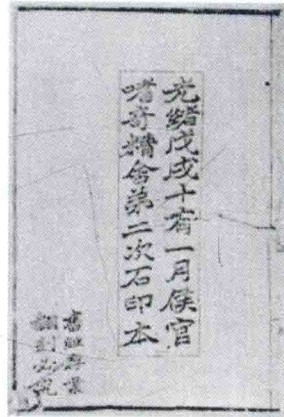 光緒戊戌十有一月侯官
嗜奇精舍第二次石印本
書經存案
翻刻必究